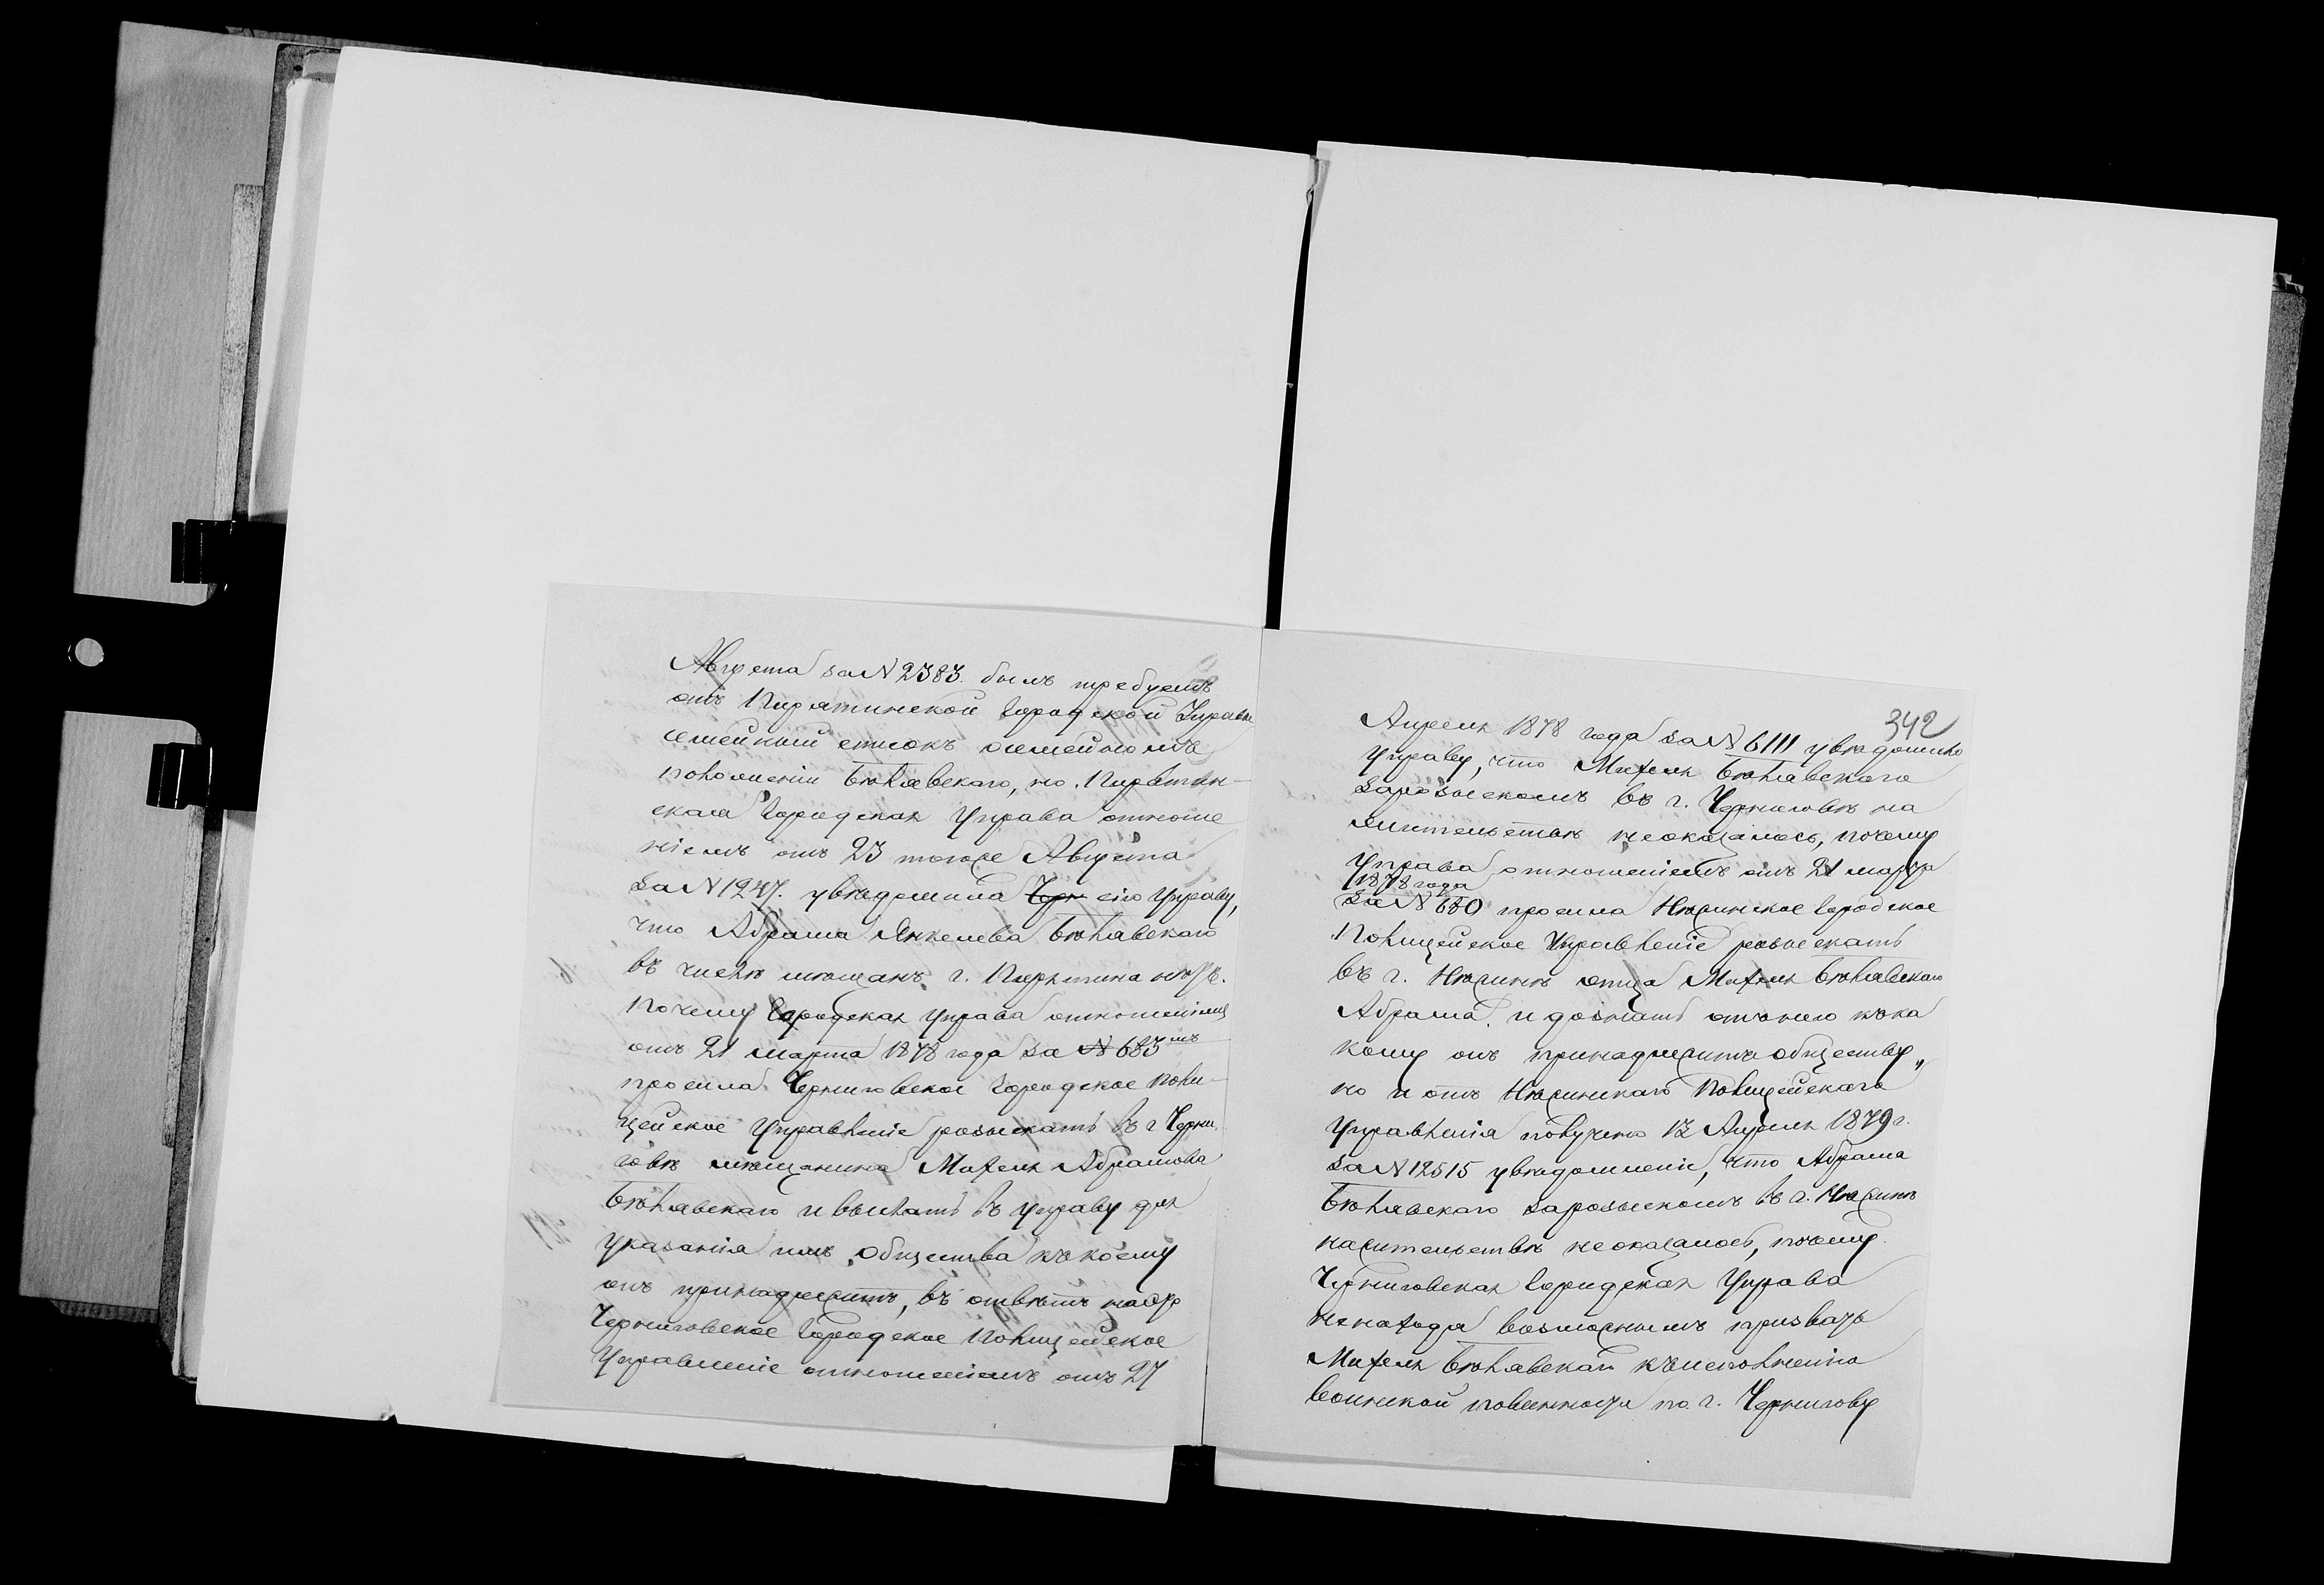 Августа за № 2383. былъ требуемъ
отъ Пирятинской Городской Управы
семейный списокъ о семейномъ
положеніи Бѣлявскаго, но Пирятин-
ская Городская Управа отноше
ніемъ отъ 23 тогоже Августа
за № 1247. увѣдомила Черн сію Управу,
что Абрама Янкелева Бѣлявскаго
въ числѣ мѣщанъ г. Пирятина нѣтъ.
Почему Городская Управа отношеніемъ
отъ 21 марта 1878 года за № 683мъ
просила Черниговское Городское Поли-
цейское Управленіе розыскать въ г Черни
говѣ мѣщанина Мателя Абрамова
Бѣлявскаго и выслать въ Управу для
указанія имъ общества къ коему
онъ принадлежитъ, въ отвѣтъ на
Черниговское Городское Полицейское
Управленіе отношеніемъ отъ 27
342
Апрѣля 1878 года за № 6111 увѣдомило
Управу, что Мателя Бѣлявскаго
зарозыскомъ въ г. Черниговѣ на
жительствѣ неоказалось, почему
Управа отношеніемъ отъ 21 марта
1878 года
за № 680 просила Нѣжинское Городское
Полицейское Управленіе розыскать
въ г. Нѣжинѣ отца Мателя Бѣлявскаго
Абрама. и дознать отъ него къ ка
кому онъ принадлежитъ обществу,
но и отъ Нѣжинскаго Полицейскаго
Управленія получено 13 Апрѣля 1879 г.
за № 12515 увѣдомленіе, что Абрама
Бѣлявскаго зарозыскомъ въ г. Нѣжинѣ
нажительствѣ неоказалось, почему
Черниговская Городская Управа
ненаходя возможнымъ призвать
Мателя Бѣлявскаго къ исполненію
воинской повинности по г. Чернигову